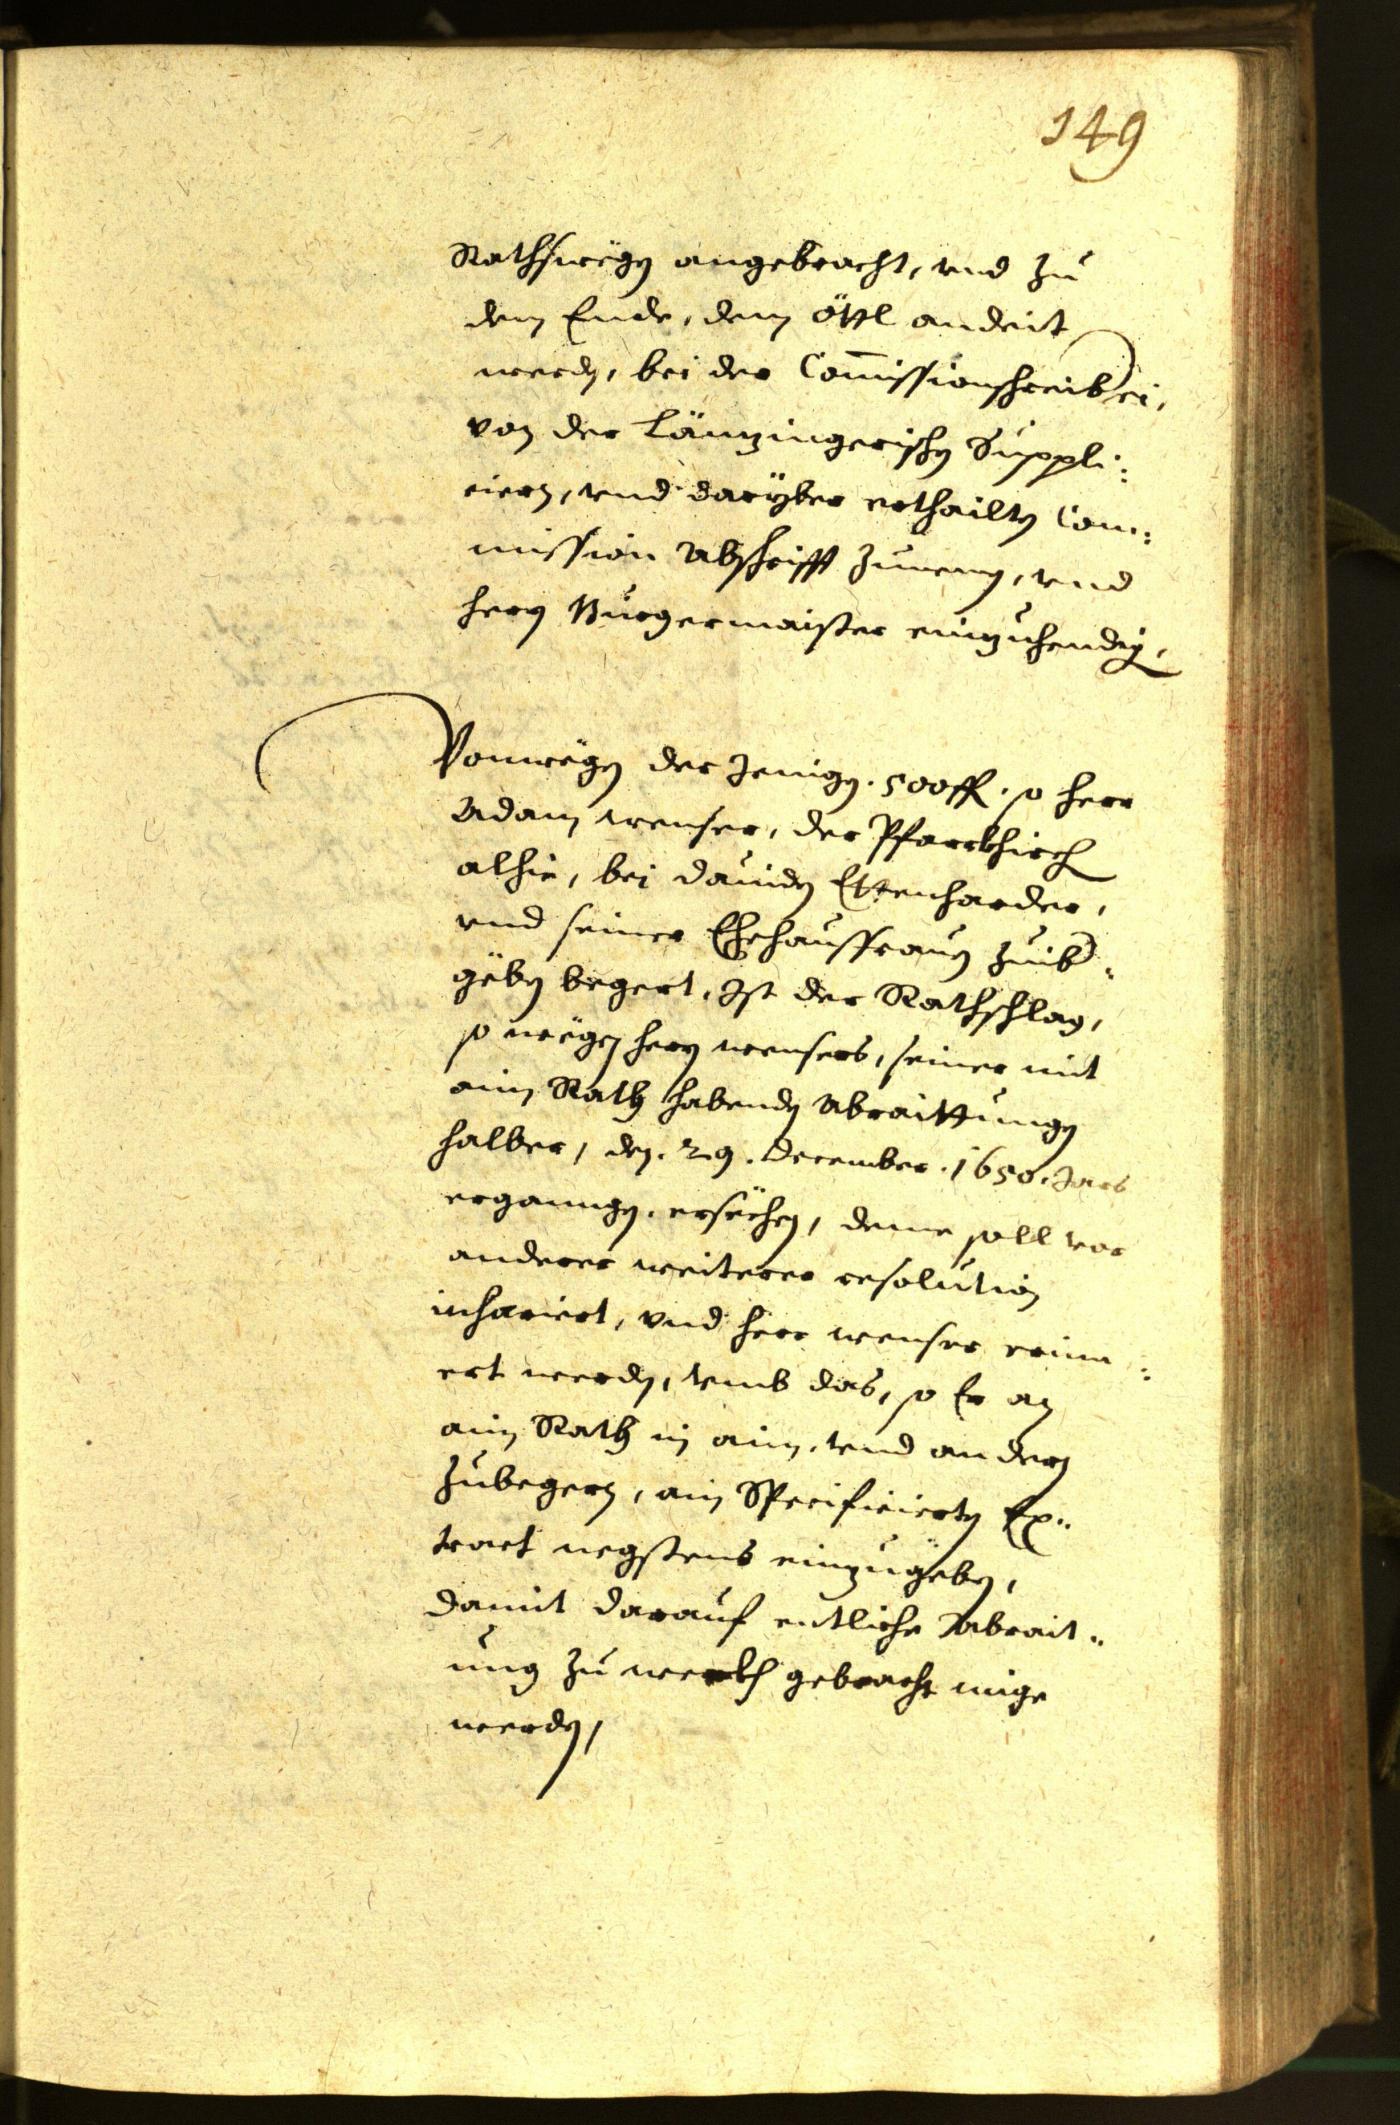 149
Rathswegen angebracht, vnd zu
dem Ende, dem Öttl andeit
werden, bei der Com̄issionschreiberei,
von der Länzingerischen Suppli:
ciern, vnd darüber erthailten Com:
mission Abschrifft zunemen, vnd
hern Burgermaister einzuhendigen,
Vonwegen der Jenigen. 500 fl. so herr
Adam wenser, der Pfarrkhirch
alhie, bei dauiden Ettenharder,
vnd seiner Ehehaussfrauen zuüber:
geben begert, Ist der Rathschlag,
so wegen hern wensers, seiner mit
aim Rath habenden Abraittungen
halber, den. 29. December. 1650. Jars
erganngen, ersechen, deme soll vor
anderer weiterer resolution
inhæriert, vnd herr wenser erinn:
ert werden, vmb das, so Er an
ain Rath in ain, vnd andern
zubegern, ain Specificierten Ex:
tract negstens einzugeben,
damit darauf entliche Abrait:
ung zu werkh gebracht mige
werden,